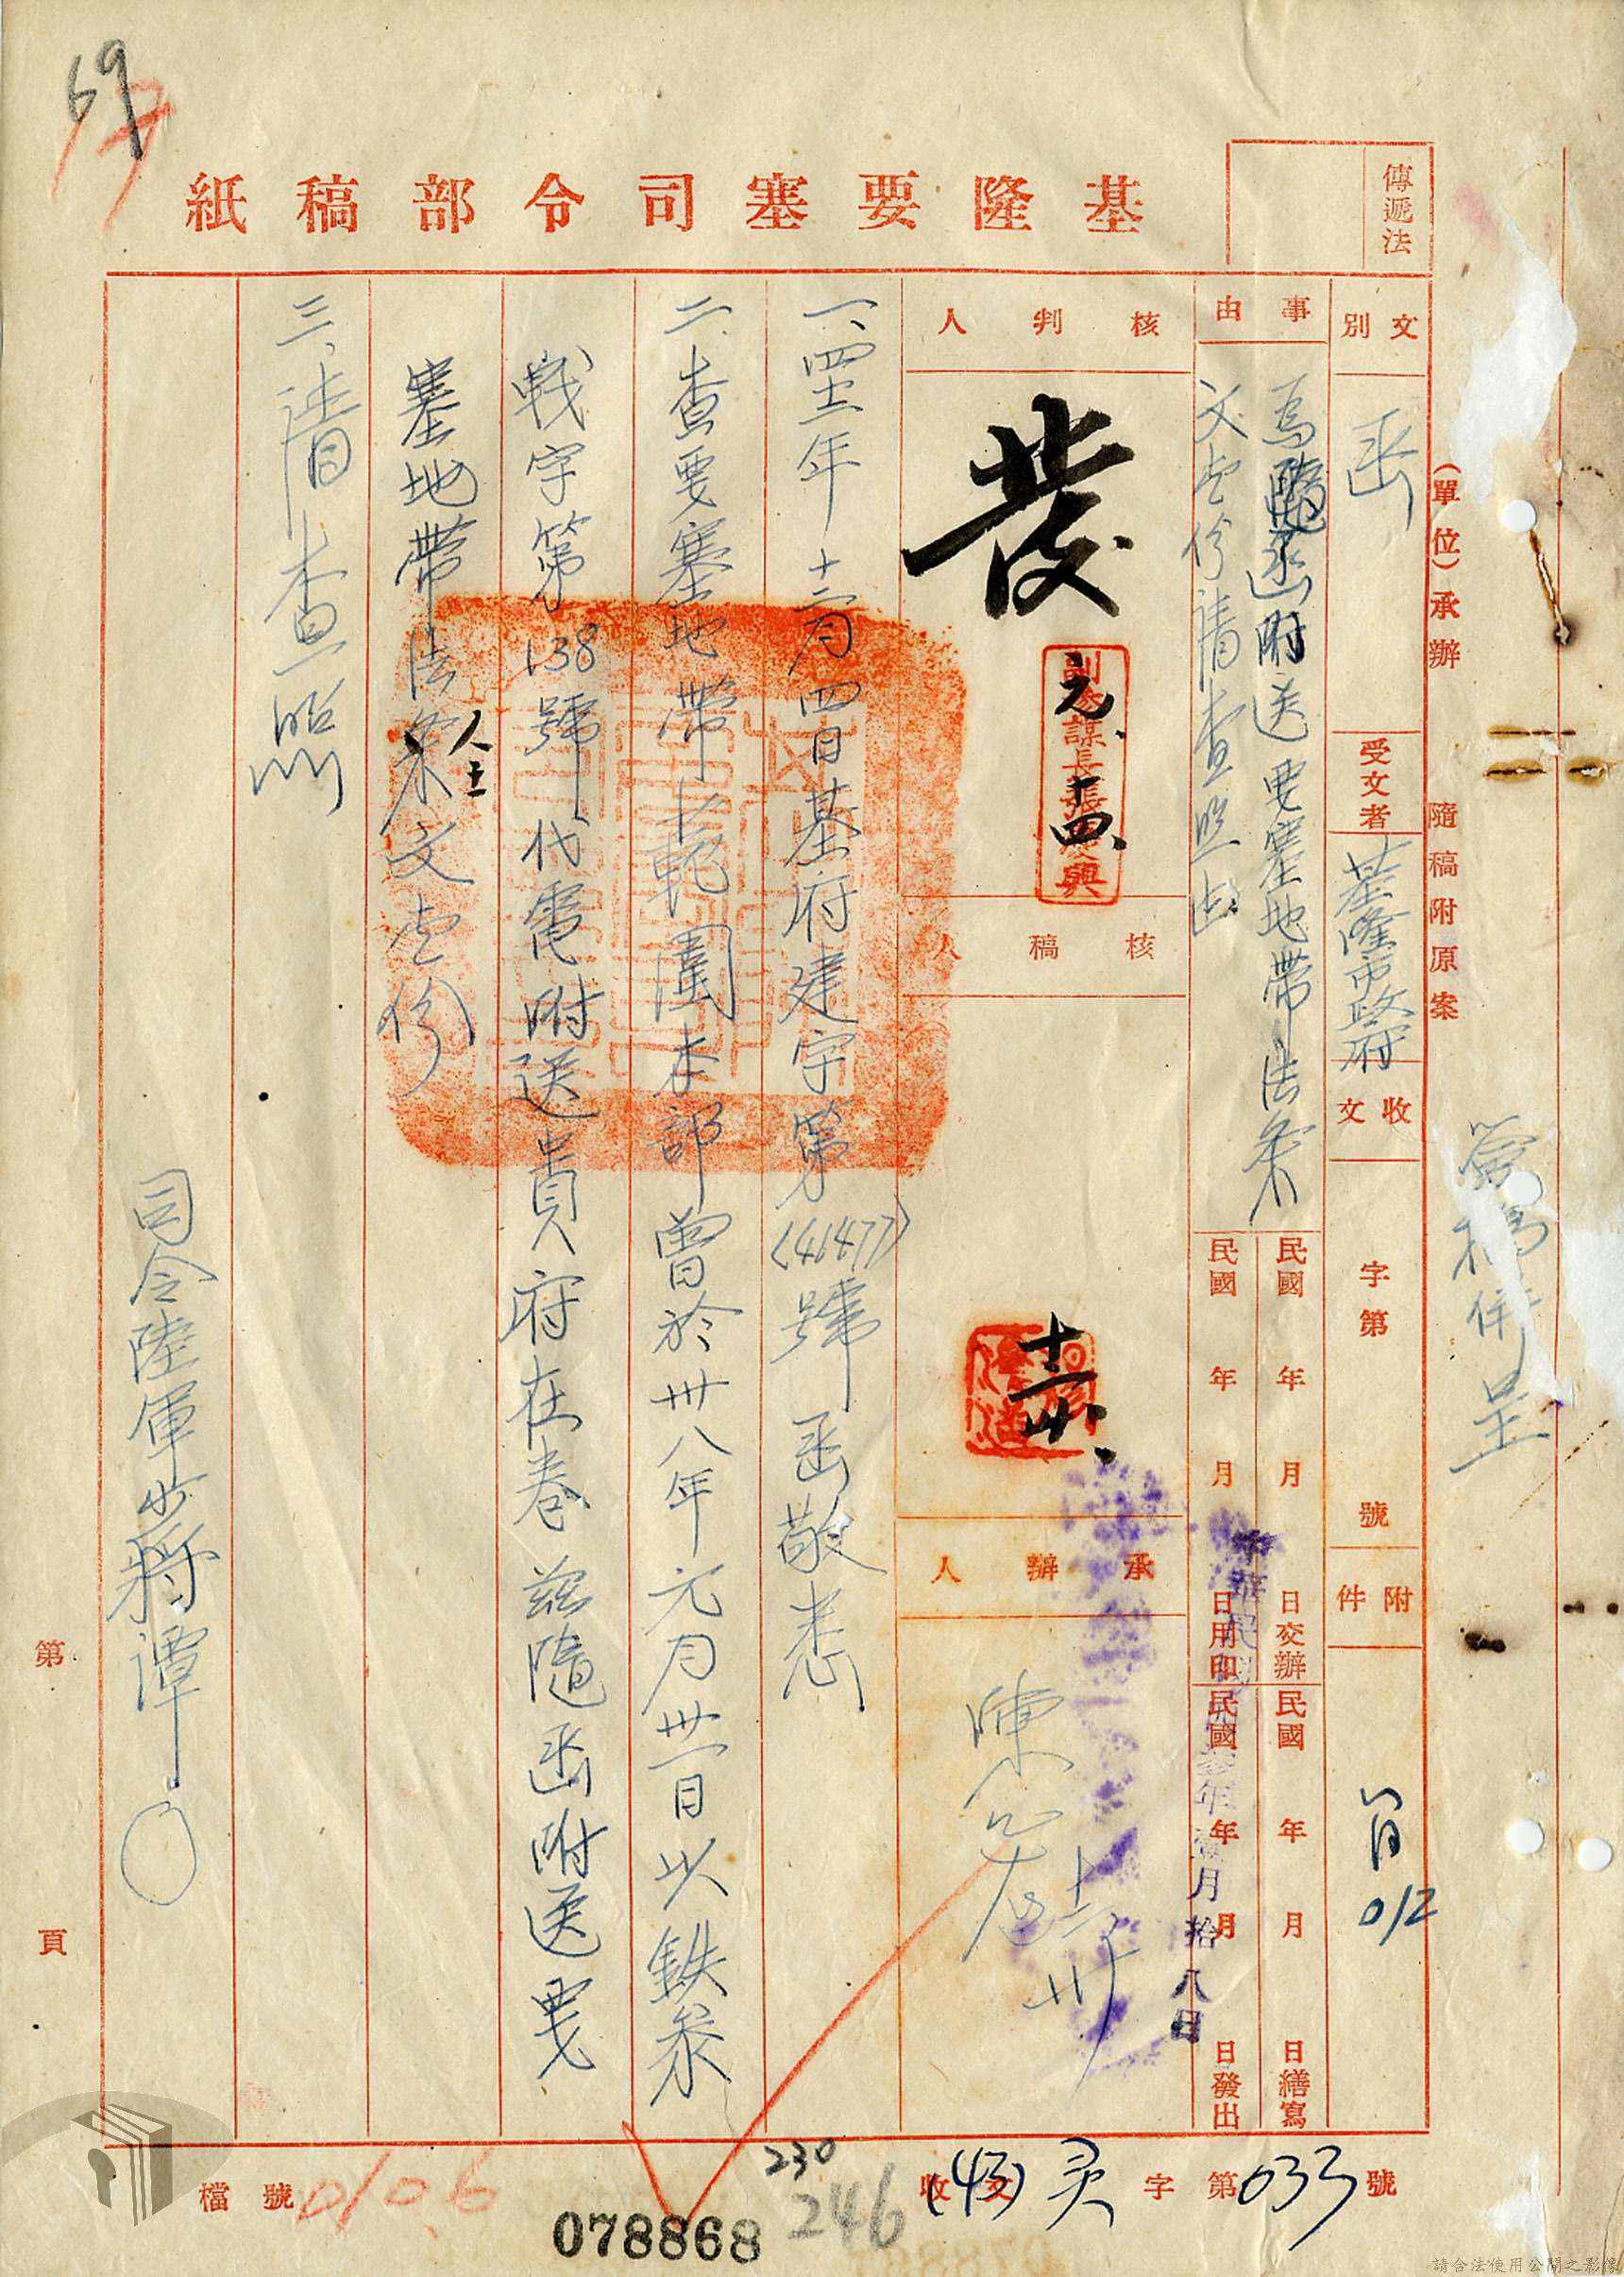 69
基隆要塞司令部稿紙
傳遞法
(單位)承辦 隨稿附原案
簽稿併呈
文別 函
受文者 基隆市政府
收文 字第 號
附件
012
事由 為隨函附送要塞地帶法条
文壹份請查照由
民國 年 月 日交辦
民國 年 月 日繕寫
民國 年 月 日用印
民國 年 月 日發出
年壹月拾八日
核判人
發
元、十四、
核稿人
承辦人
一、四二年十二月四日基府建字第(41477)號函敬悉
二、查要塞地帶範圍本部曾於卅八年元月卅一日以鉄参
戰字第138號代電附送貴府在卷茲隨函附送要
塞地帶法条全文壹份
三、請查照
司令陸軍少將譚○
第 頁
檔號 010.6
收文(43)字第033號
230
246
078868
請合法使用公開之影像